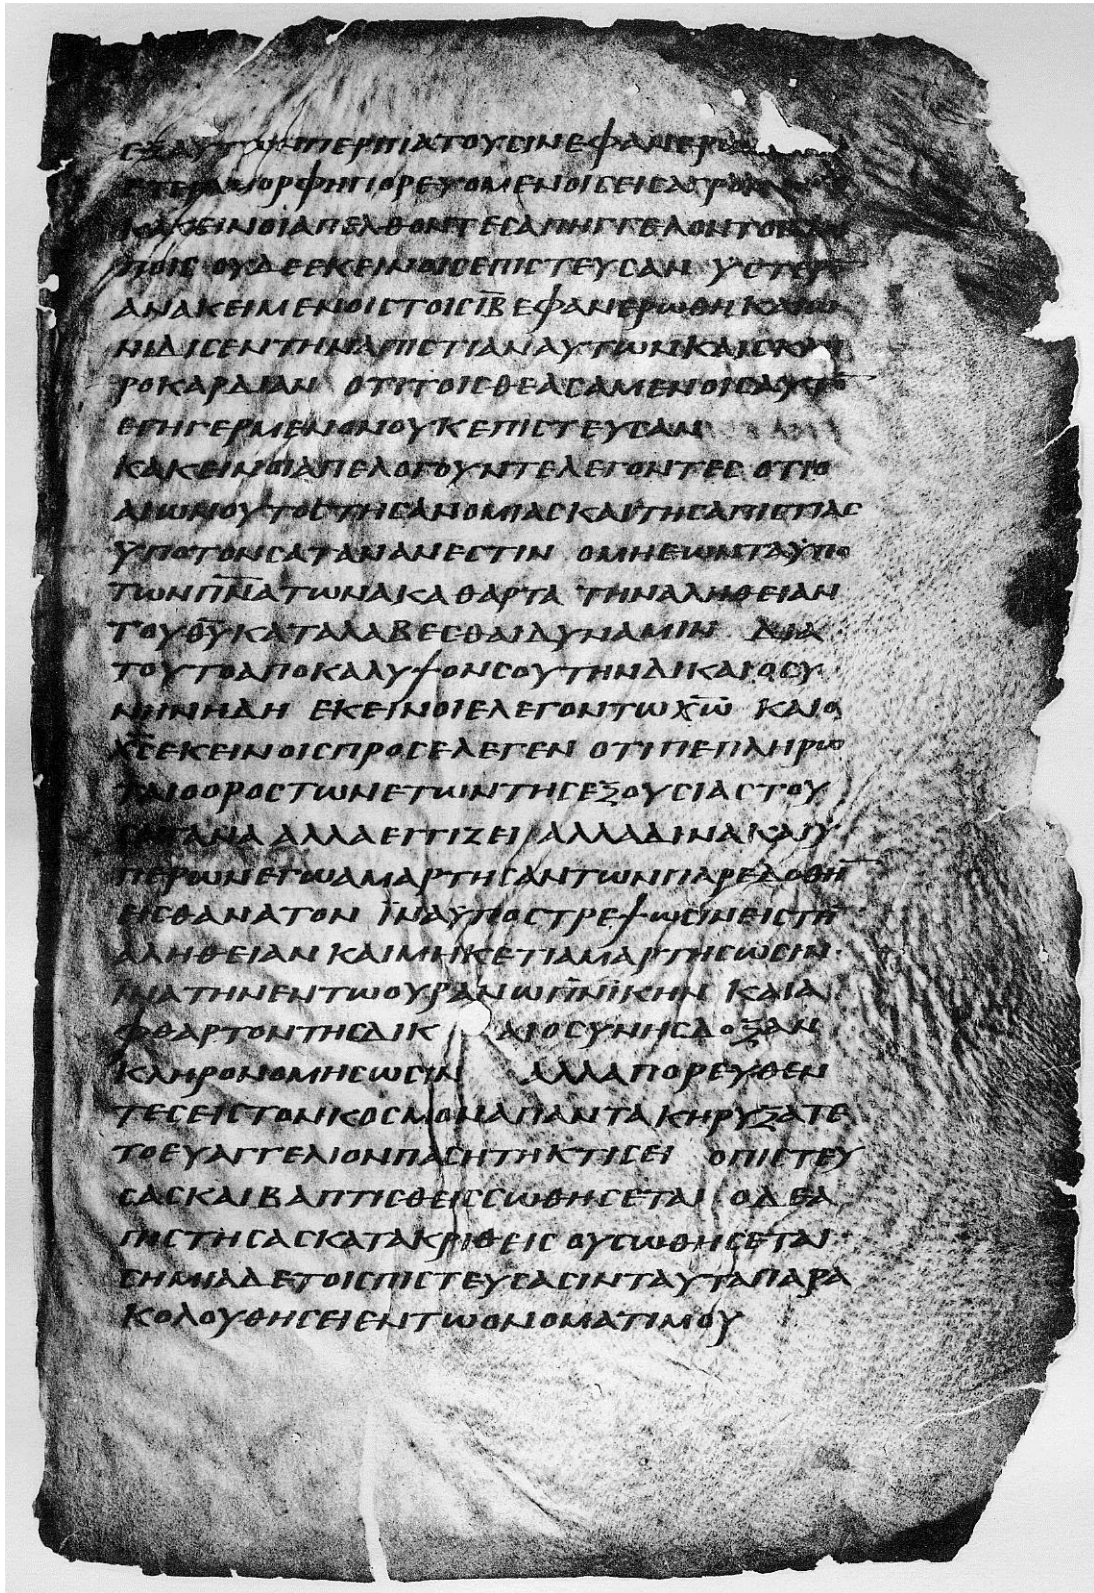 ΕΞΑΥΤΩΝΠΕΡΠΑΤΟΥCΙΝΕΦΑΝΕΡΩ
ΕΤΕΡΑΜΟΡΦΗΠΟΡΕΥΟΜΕΝΟΙCΕΙCΑΓΡΟΝ
ΚΑΚΕΙΝΟΙΑΠΕΛΘΟΝΤΕCΑΠΗΓΓΕΛΟΝΤΟΙCΛΟΙ
ΠΟΙC ΟΥΔΕΕΚΕΙΝΟΙCΕΠΙCΤΕΥCΑΝ ΥCΤΕΡΟ̅
ΑΝΑΚΕΙΜΕΝΟΙCΤΟΙCΙ̅Α̅ΕΦΑΝΕΡΩΘΗΚΑΙΩ
ΝΙΔΙCΕΝΤΗΝΑΠΙCΤΙΑΝΑΥΤΩΝΚΑΙCΚΛΗ
ΡΟΚΑΡΔΙΑΝ ΟΤΙΤΟΙCΘΕΑCΑΜΕΝΟΙCΑΥΤΟ̅
ΕΓΗΓΕΡΜΕΝΟΝΟΥΚΕΠΙCΤΕΥCΑΝ
ΚΑΚΕΙΝΟΙΑΠΕΛΟΓΟΥΝΤΕΛΕΓΟΝΤΕC ΟΤΙΟ
ΑΙΩΝΟΥΤΟCΤΗCΑΝΟΜΙΑCΚΑΙΤΗCΑΠΙCΤΙΑC
ΥΠΟΤΟΝCΑΤΑΝΑΝΕCΤΙΝ ΟΜΗΕΩΝΤΑΥΠΟ
ΤΩΝΠ̅Ν̅ΑΤΩΝΑΚΑΘΑΡΤΑ ΤΗΝΑΛΗΘΕΙΑΝ
ΤΟΥΘ̅Υ̅ΚΑΤΑΛΑΒΕCΘΑΙΔΥΝΑΜΙΝ ΔΙΑ
ΤΟΥΤΟΑΠΟΚΑΛΥΨΟΝCΟΥΤΗΝΔΙΚΑΙΟCΥ
ΝΗΝΗΔΗ ΕΚΕΙΝΟΙΕΛΕΓΟΝΤΩΧ̅Ω̅ ΚΑΙΟ
Χ̅C̅ΕΚΕΙΝΟΙCΠΡΟCΕΛΕΓΕΝ ΟΤΙΠΕΠΛΗΡΩ
ΤΑΙΟΟΡΟCΤΩΝΕΤΩΝΤΗCΕΞΟΥCΙΑCΤΟΥ
CΑΤΑΝΑ ΑΛΛΑΕΓΓΙΖΕΙ ΑΛΛΑΔΙΝΑΚΑΙΥ
ΠΕΡΩΝΕΓΩΑΜΑΡΤΗCΑΝΤΩΝΠΑΡΕΔΟΘΗ̅
ΕΙCΘΑΝΑΤΟΝ ΪΝΑΫΠΟCΤΡΕΨΩCΙΝΕΙCΤΗ̅
ΑΛΗΘΕΙΑΝΚΑΙΜΗΚΕΤΙΑΜΑΡΤΗCΩCΙΝ
ΪΝΑΤΗΝΕΝΤΩΟΥΡΑΝΩΠ̅Ν̅ΙΚΗΝ ΚΑΙΑ
ΦΘΑΡΤΟΝΤΗCΔΙΚ ΑΙΟCΥΝΗCΔΟΞΑΝ
ΚΛΗΡΟΝΟΜΗCΩCΙΝ ΑΛΛΑΠΟΡΕΥΘΕΝ
ΤΕCΕΙCΤΟΝΚΟCΜΟΝΑΠΑΝΤΑΚΗΡΥΞΑΤΕ
ΤΟΕΥΑΓΓΕΛΙΟΝΠΑCΗΤΗΚΤΙCΕΙ ΟΠΙCΤΕΥ
CΑCΚΑΙΒΑΠΤΙCΘΕΙCCΩΘΗCΕΤΑΙ ΟΔΕΑ
ΠΙCΤΗCΑCΚΑΤΑΚΡΙΘΕΙC ΟΥCΩΘΗCΕΤΑΙ
CΗΜΙΑΔΕΤΟΙCΠΙCΤΕΥCΑCΙΝΤΑΥΤΑΠΑΡΑ
ΚΟΛΟΥΘΗCΕΙΕΝΤΩΟΝΟΜΑΤΙΜΟΥ